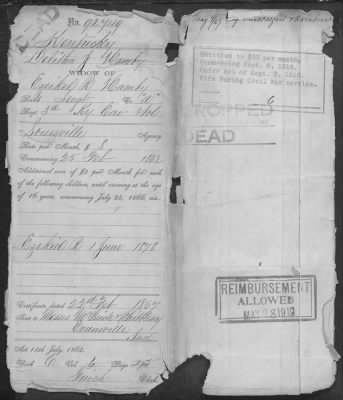 DEAD
No. 92,749
Kentucky
Hamby
WIDOW OF
Ezekiel R. Hamby
Rank Sergt Co. "A"
Reg. 8th Ky Cav Vol
Louisville Agency
Rate per Month, $ 8
Commencing 25 Feb 1863
Additional sum of $2 per Month for each
of the following children, until arriving at the age
of 16 years, commencing July 25, 1866, viz:
Ezekiel R. 1 June 1878
Certificate dated 22d Feb 1867
Sent to Messrs
Evansville
Ind
Act 14th July, 1862.
Book C Vol. 6 Page
French Clerk
Entitled to $30 per month,
Commencing Sept. 8, 1916,
Under Act of Sept. 8, 1916.
Wife During Civil War service.
DROPPED
DEAD
REIMBURSEMENT
ALLOWED
MAY 28 1919